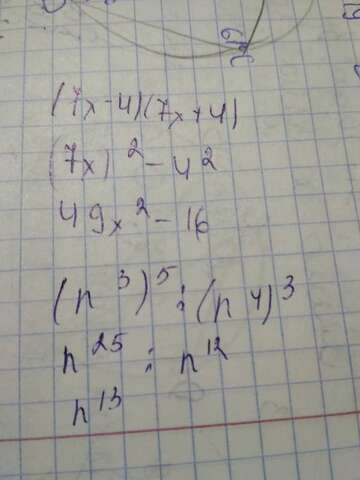 (7x-4)(7x+4)
(7x)² - 4²
49x² - 16
(n³)⁵ : (n⁴)³
n²⁵ : n¹²
n¹³